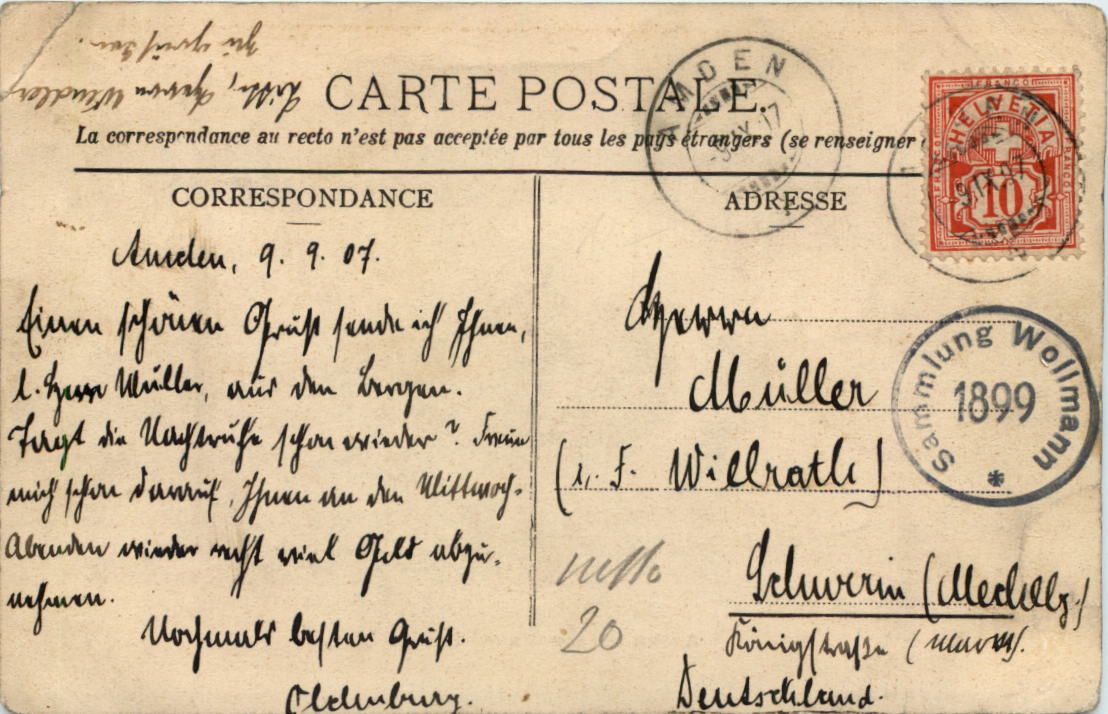 Bitte, Herrn Windler
zu grüßen.
CARTE POSTALE.
La correspondance au recto n'est pas acceptée par tous les pays étrangers (se renseigner
CORRESPONDANCE
ADRESSE
AMDEN
9.IX.07
FRANCO
HELVETIA
10
9.IX.07
Sammlung Wollmann
1899
*
Amden, 9. 9. 07.
Einen schönen Gruß sende ich Ihnen,
l. Herr Müller, aus den Bergen.
Tagt die Nachtruhe schon wieder? Freue
mich schon darauf, Ihnen an den Mittwoch-
Abenden wieder recht viel Geld abzu-
nehmen.
Nochmals besten Gruß.
Oldenburg.
Herrn
Müller
(i. F. Willrath)
Schwerin (Mecklbg.)
Königstraße
Deutschland.
20